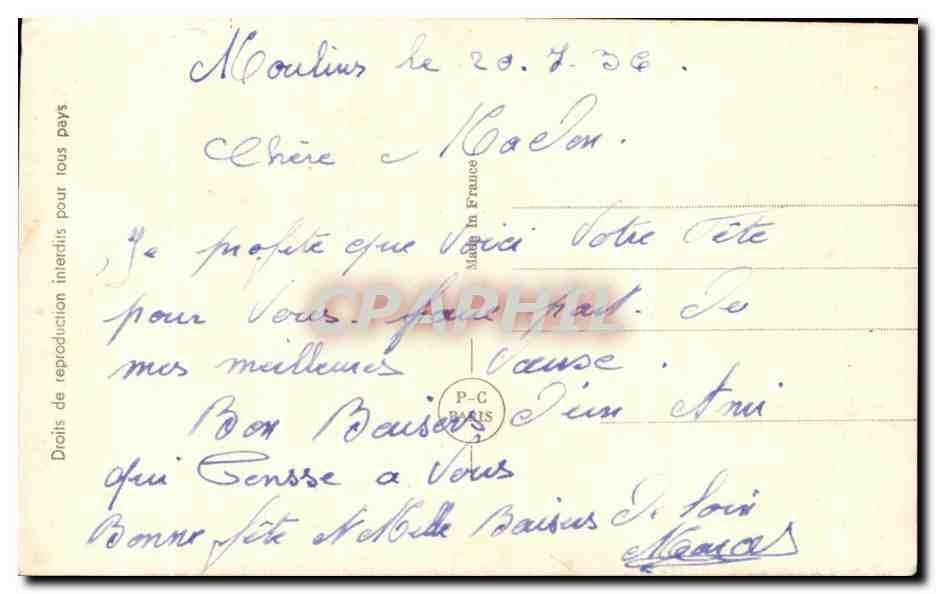 Moulins le 20.7.36.
Chère Madon.
Je profite que voici Votre Fête
pour Vous faire part de
mes meilleures Vœuse.
Bon Baisers d'un Ami
qui Pensse a Vous
Bonne fête Mille Baisers De loin
Droits de reproduction interdits pour tous pays
Made in France
P-C
PARIS
CPAPHIL